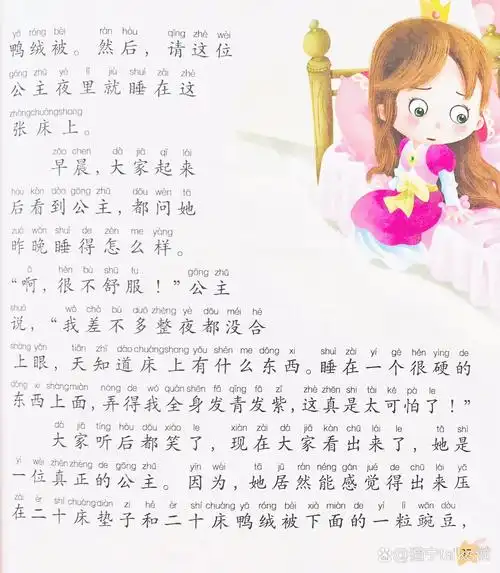 yā róng bèi rán hòu qǐng zhè wèi
鸭绒被。然后，请这位
gōng zhǔ yè lǐ jiù shuì zài zhè
公主夜里就睡在这
zhāngchuángshang
张床上。
zǎo chen dà jiā qǐ lái
早晨，大家起来
hòu kàn dào gōng zhǔ dōu wèn tā
后看到公主，都问她
zuó wǎn shuì de zěn me yàng
昨晚睡得怎么样。
ā hěn bù shū fu gōng zhǔ
“啊，很不舒服！”公主
shuō wǒ chà bù duō zhěng yè dōu méi hé
说，“我差不多整夜都没合
shàng yǎn tiān zhī dào chuáng shang yǒu shén me dōng xi shuì zài yí gè hěn yìng de
上眼，天知道床上有什么东西。睡在一个很硬的
dōng xi shàng miàn nòng de wǒ quán shēn fā qīng fā zǐ zhè zhēn shì tài kě pà le
东西上面，弄得我全身发青发紫，这真是太可怕了！”
dà jiā tīng hòu dōu xiào le xiàn zài dà jiā kàn chū lái le tā shì
大家听后都笑了，现在大家看出来了，她是
yí wèi zhēn zhèng de gōng zhǔ yīn wèi tā jū rán néng gǎn jué de chū lái yā
一位真正的公主。因为，她居然能感觉得出来压
zài èr shí chuáng diàn zi hé èr shí chuáng yā róng bèi xià miàn de yí lì wān dòu
在二十床垫子和二十床鸭绒被下面的一粒豌豆，